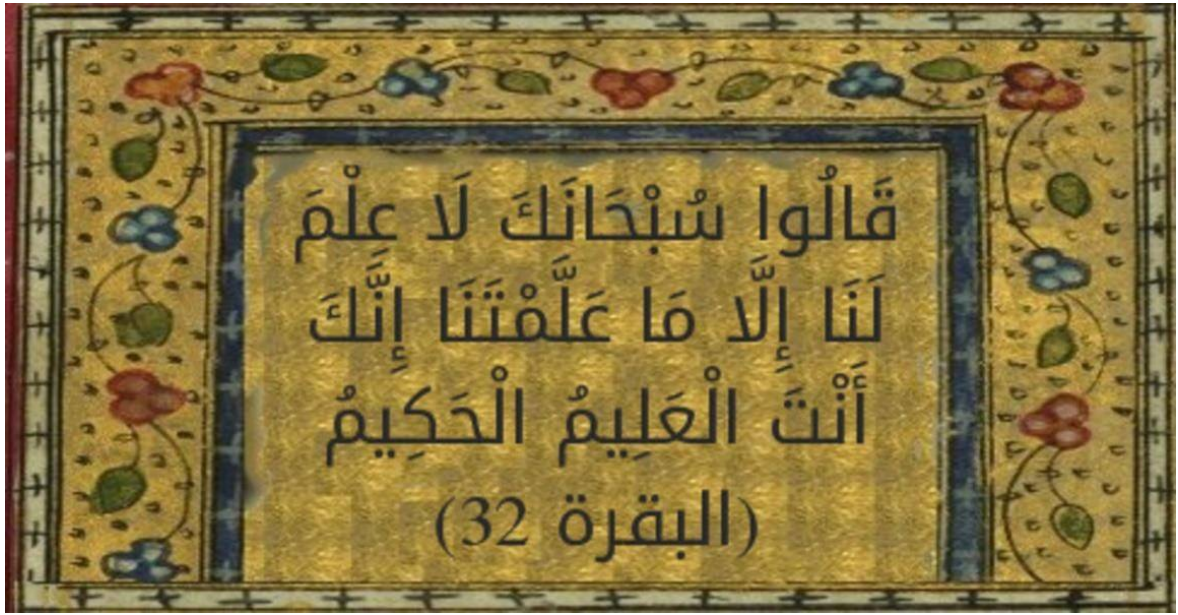 قَالُوا سُبْحَانَكَ لَا عِلْمَ
لَنَا إِلَّا مَا عَلَّمْتَنَا إِنَّكَ
أَنْتَ الْعَلِيمُ الْحَكِيمُ
(البقرة 32)